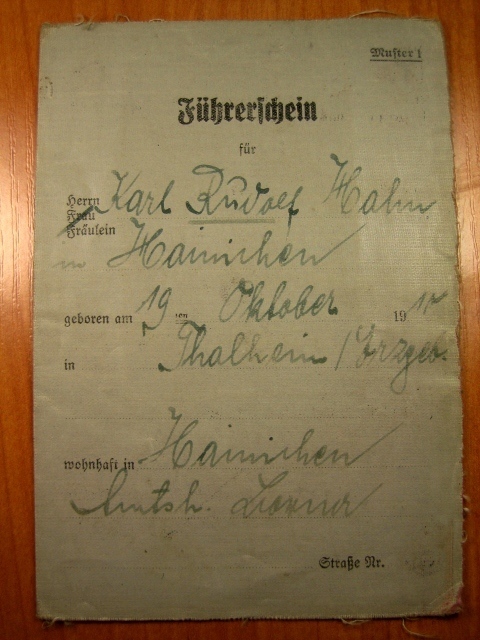 Muster 1
Führerschein
für
Herrn
Frau
Fräulein
Karl Rudolf Hahn
in Hainichen
geboren am 19 ten Oktober 1910
in Thalheim / Erzgeb.
wohnhaft in Hainichen
Amtsh. Borna
Straße Nr.